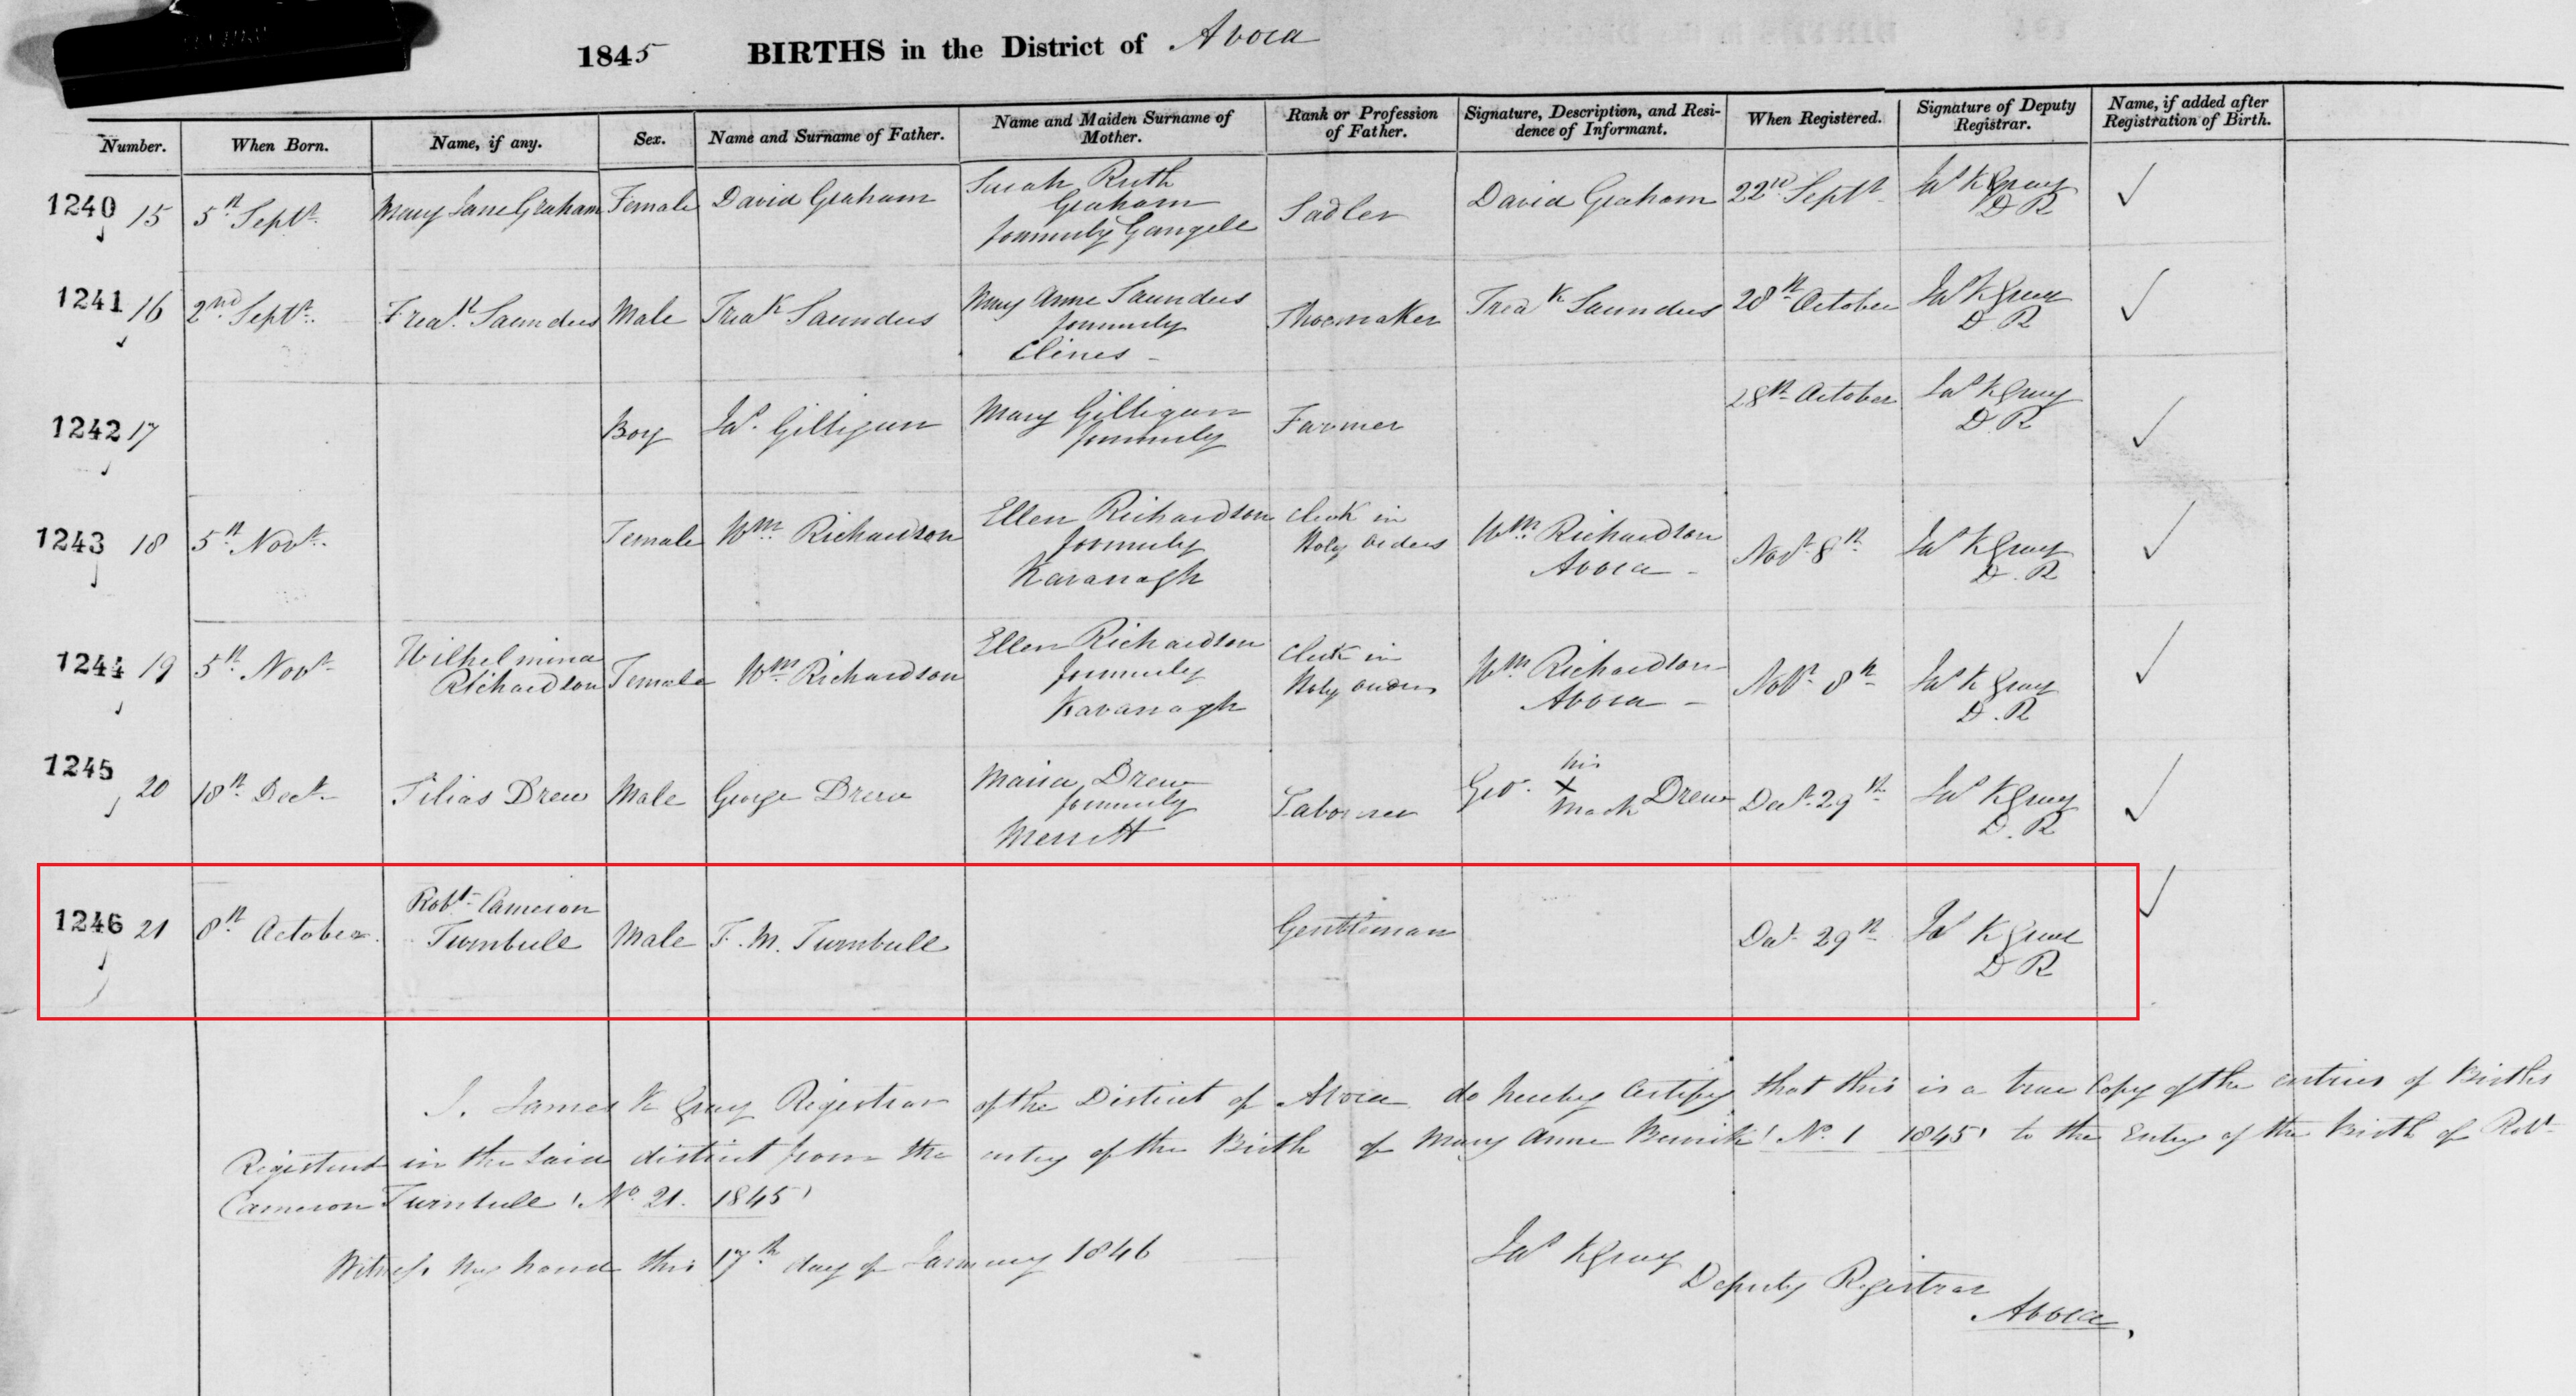 1845 BIRTHS in the District of Avoca
Number. When Born. Name, if any. Sex. Name and Surname of Father. Name and Maiden Surname of Mother. Rank or Profession of Father. Signature, Description, and Residence of Informant. When Registered. Signature of Deputy Registrar. Name, if added after Registration of Birth.
1240 15 5th Septr Mary Jane Graham Female David Graham Sarah Ruth Graham formerly Gangell Sadler David Graham 22nd Septr Jas K Gray D R
1241 16 2nd Septr Fredk Saunders Male Fredk Saunders Mary Anne Saunders formerly Clines Shoemaker Fredk Saunders 28th October Jas K Gray D. R
1242 17 Boy Jas Gilligan Mary Gilligan formerly Farmer 28th October Jas K Gray D. R
1243 18 5th Novr Female Wm Richardson Ellen Richardson formerly Kavanagh Clerk in Holy Orders Wm Richardson Avoca Novr 8th Jas K Gray D. R
1244 19 5th Novr Wilhelmina Richardson Female Wm Richardson Ellen Richardson formerly Kavanagh Clerk in Holy Orders Wm Richardson Avoca Novr 8th Jas K Gray D. R
1245 20 18th Decr Drew Male George Drew Maria Drew formerly Merritt Laborer Geo. his X mark Drew Decr 29th Jas K Gray D. R
1246 21 8th October Robt Cameron Turnbull Male F. M. Turnbull Gentleman Decr 29th Jas K Gray D R
I, James K Gray Registrar of the District of Avoca do hereby Certify that this is a true Copy of the entries of Births
Registered in the said district from the entry of the Birth of Mary Anne No. 1 1845 to the Entry of the Birth of Robt
Cameron Turnbull No. 21. 1845
Witness my hand this 17th day of January 1846
Jas K Gray
Deputy Registrar
Avoca.